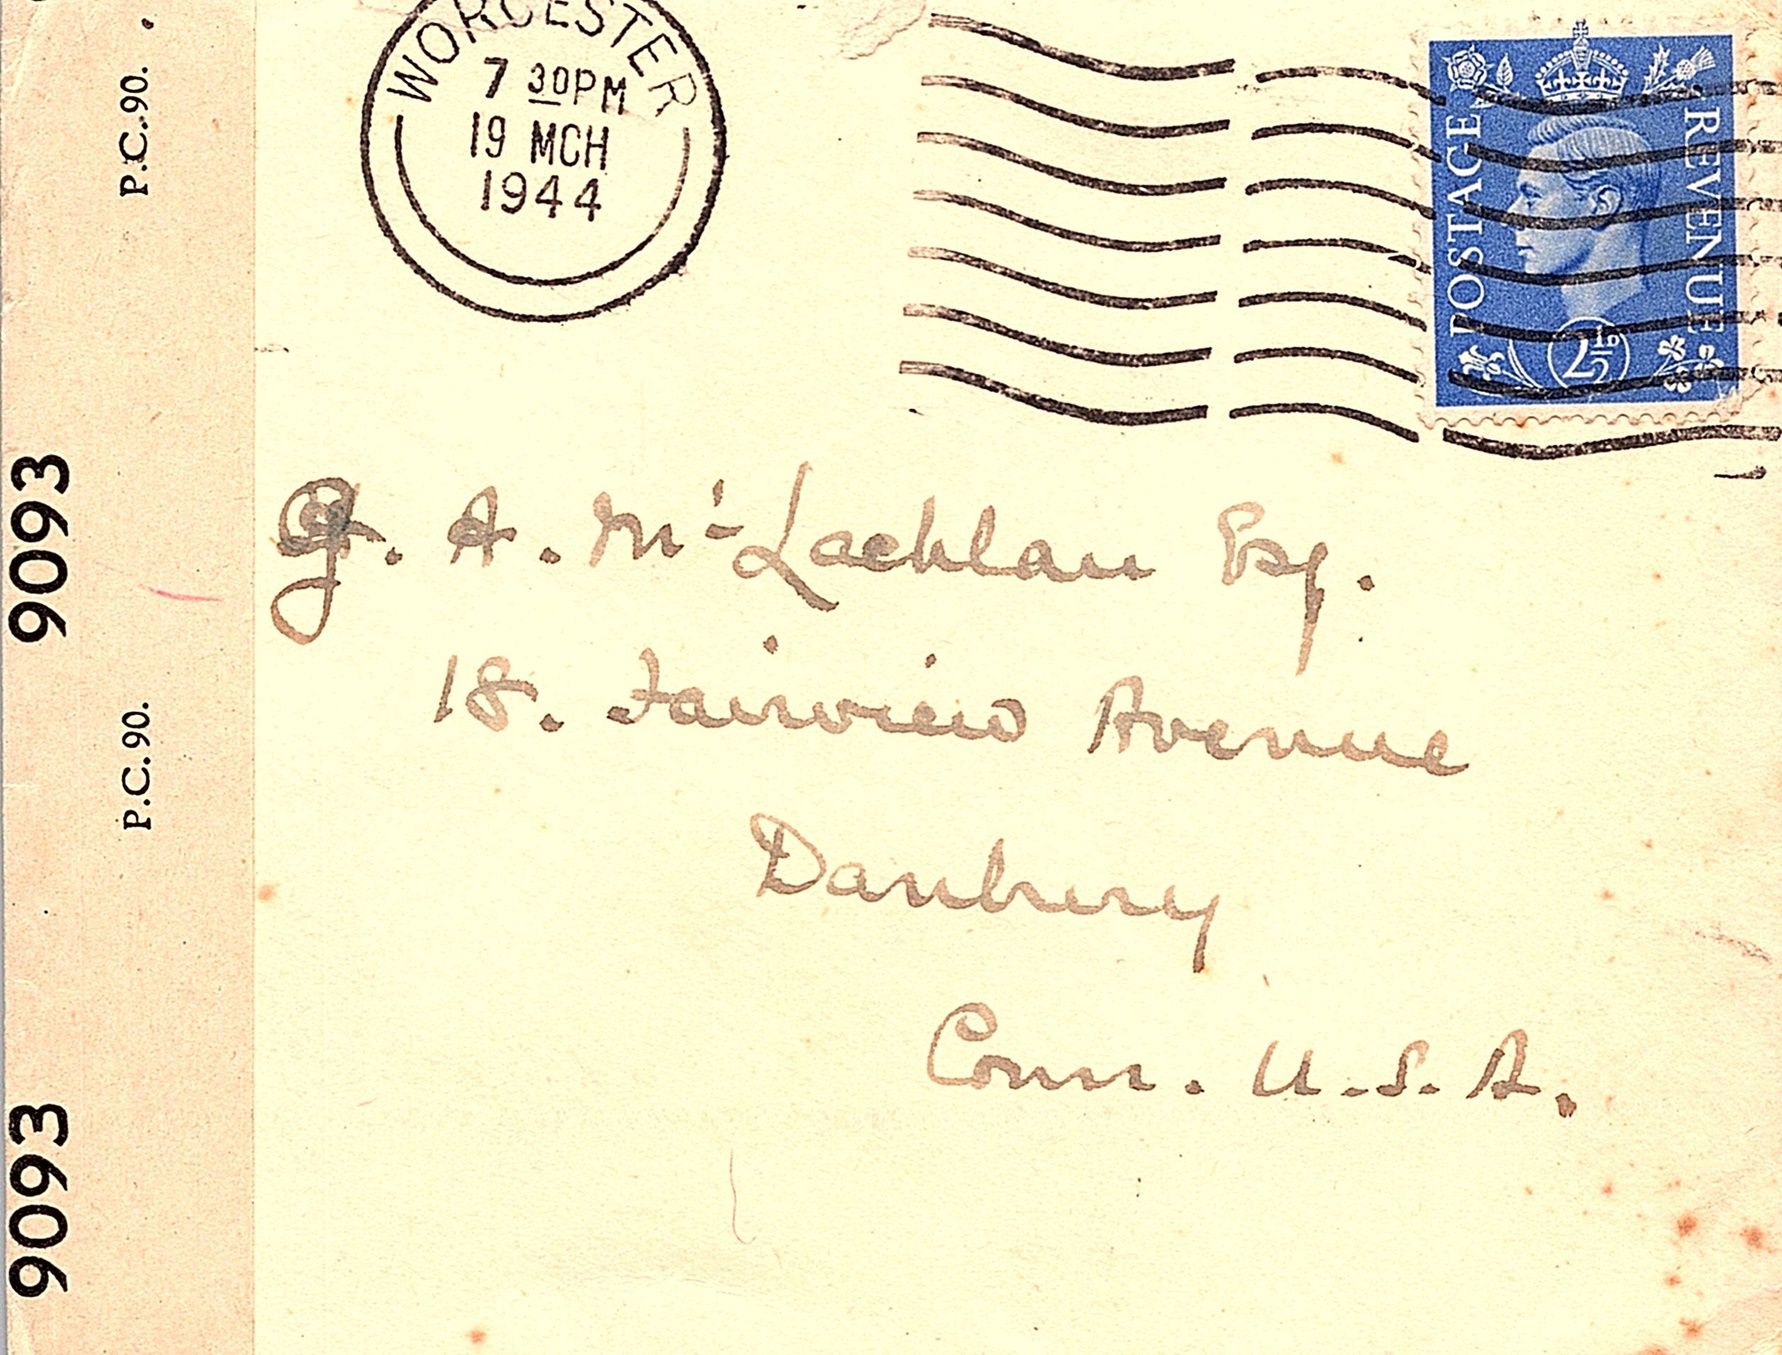 WORCESTER
7 30PM
19 MCH
1944
POSTAGE
REVENUE
2½D
P.C.90.
9093
P.C.90.
9093
A. McLachlan Esq.
18. Fairview Avenue
Danbury
Conn. U.S.A.